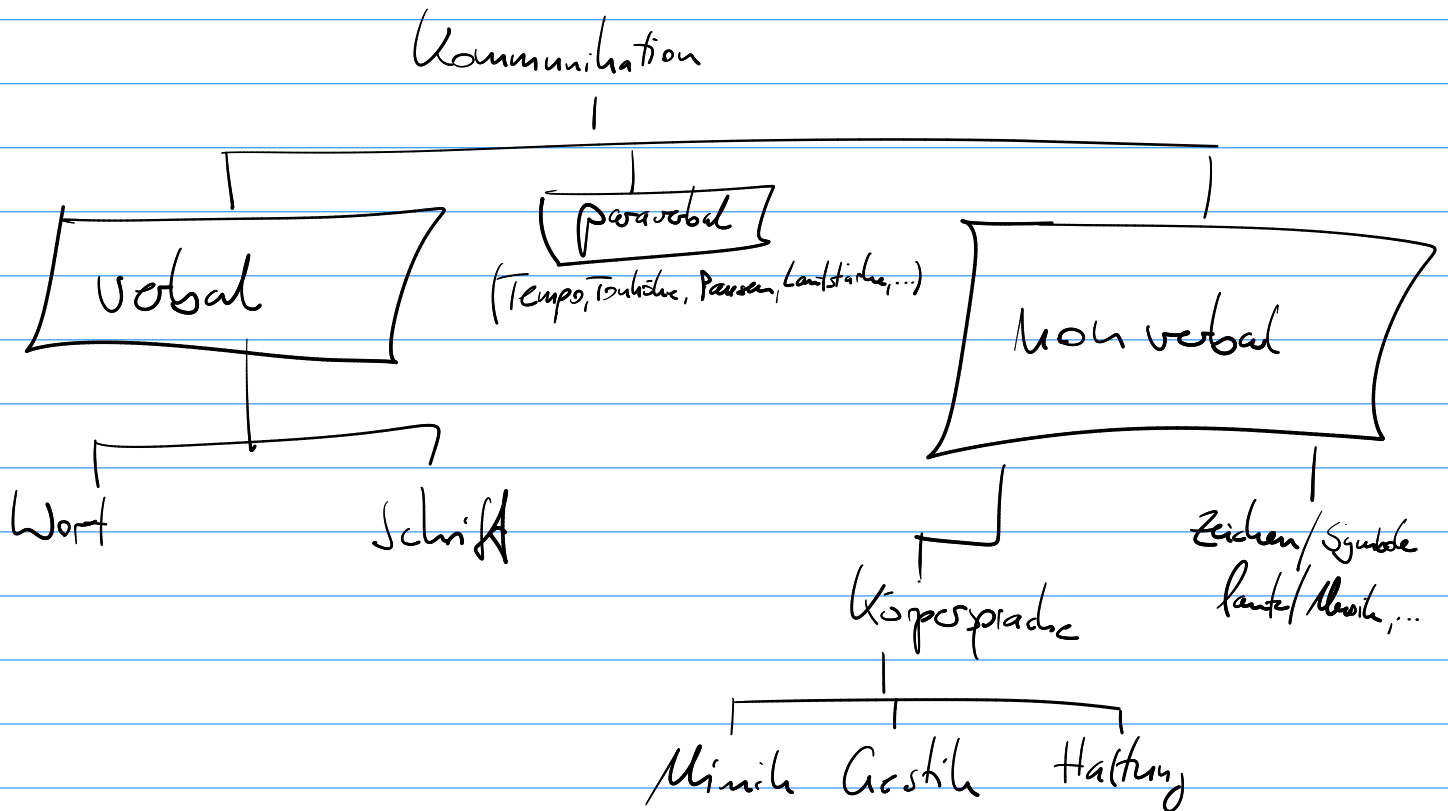 Kommunikation
verbal
paraverbal
(Tempo, Tonhöhe, Pausen, Lautstärke, ...)
nonverbal
Wort
Schrift
Körpersprache
Zeichen/Symbole
Laute/Musik, ...
Mimik Gestik Haltung